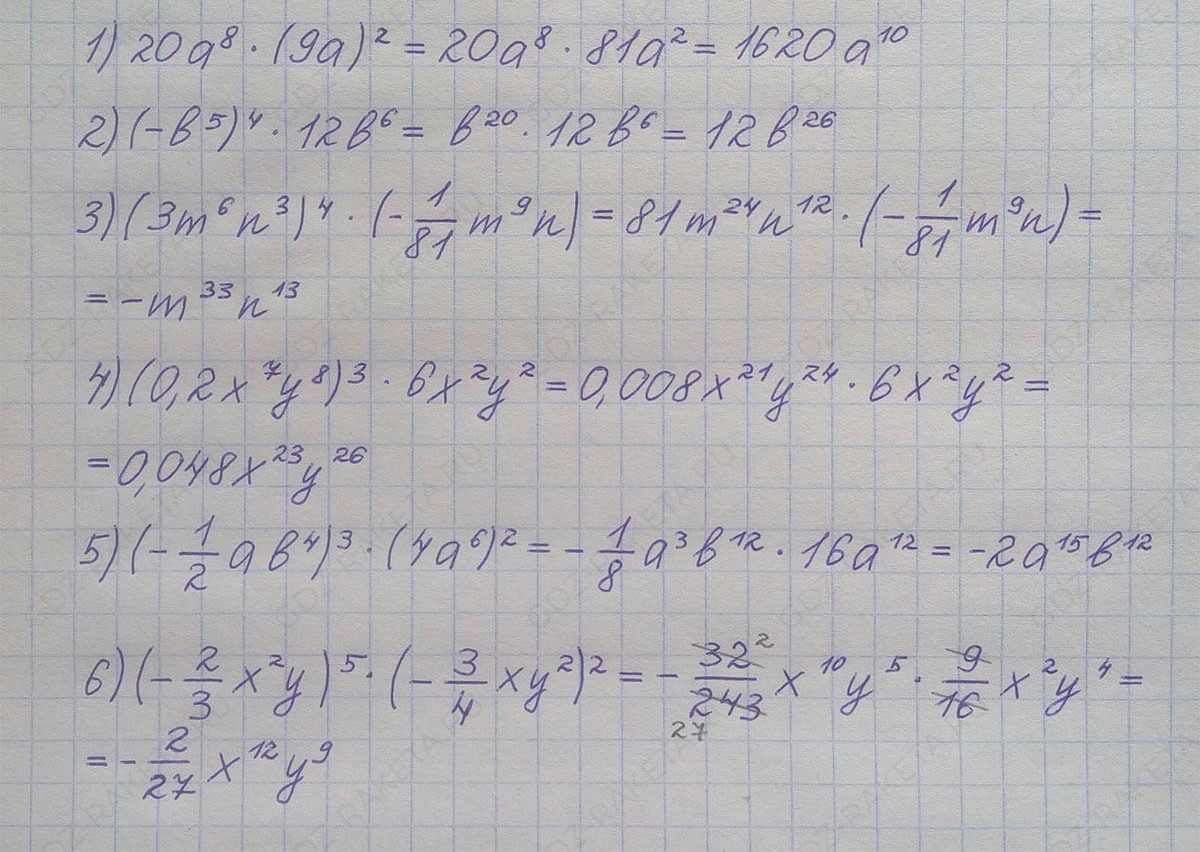 1) 20a⁸ · (9a)² = 20a⁸ · 81a² = 1620a¹⁰
2) (-b⁵)⁴ · 12b⁶ = b²⁰ · 12b⁶ = 12b²⁶
3) (3m⁶n³)⁴ · (-1/81 m⁹n) = 81m²⁴n¹² · (-1/81 m⁹n) =
= -m³³n¹³
4) (0,2x⁷y⁸)³ · 6x²y² = 0,008x²¹y²⁴ · 6x²y² =
= 0,048x²³y²⁶
5) (-1/2 ab⁴)³ · (4a⁶)² = -1/8 a³b¹² · 16a¹² = -2a¹⁵b¹²
6) (-2/3 x²y)⁵ · (-3/4 xy²)² = -32/243 x¹⁰y⁵ · 9/16 x²y⁴ =
2
27
= -2/27 x¹²y⁹
GDZ-RAKETA.RU